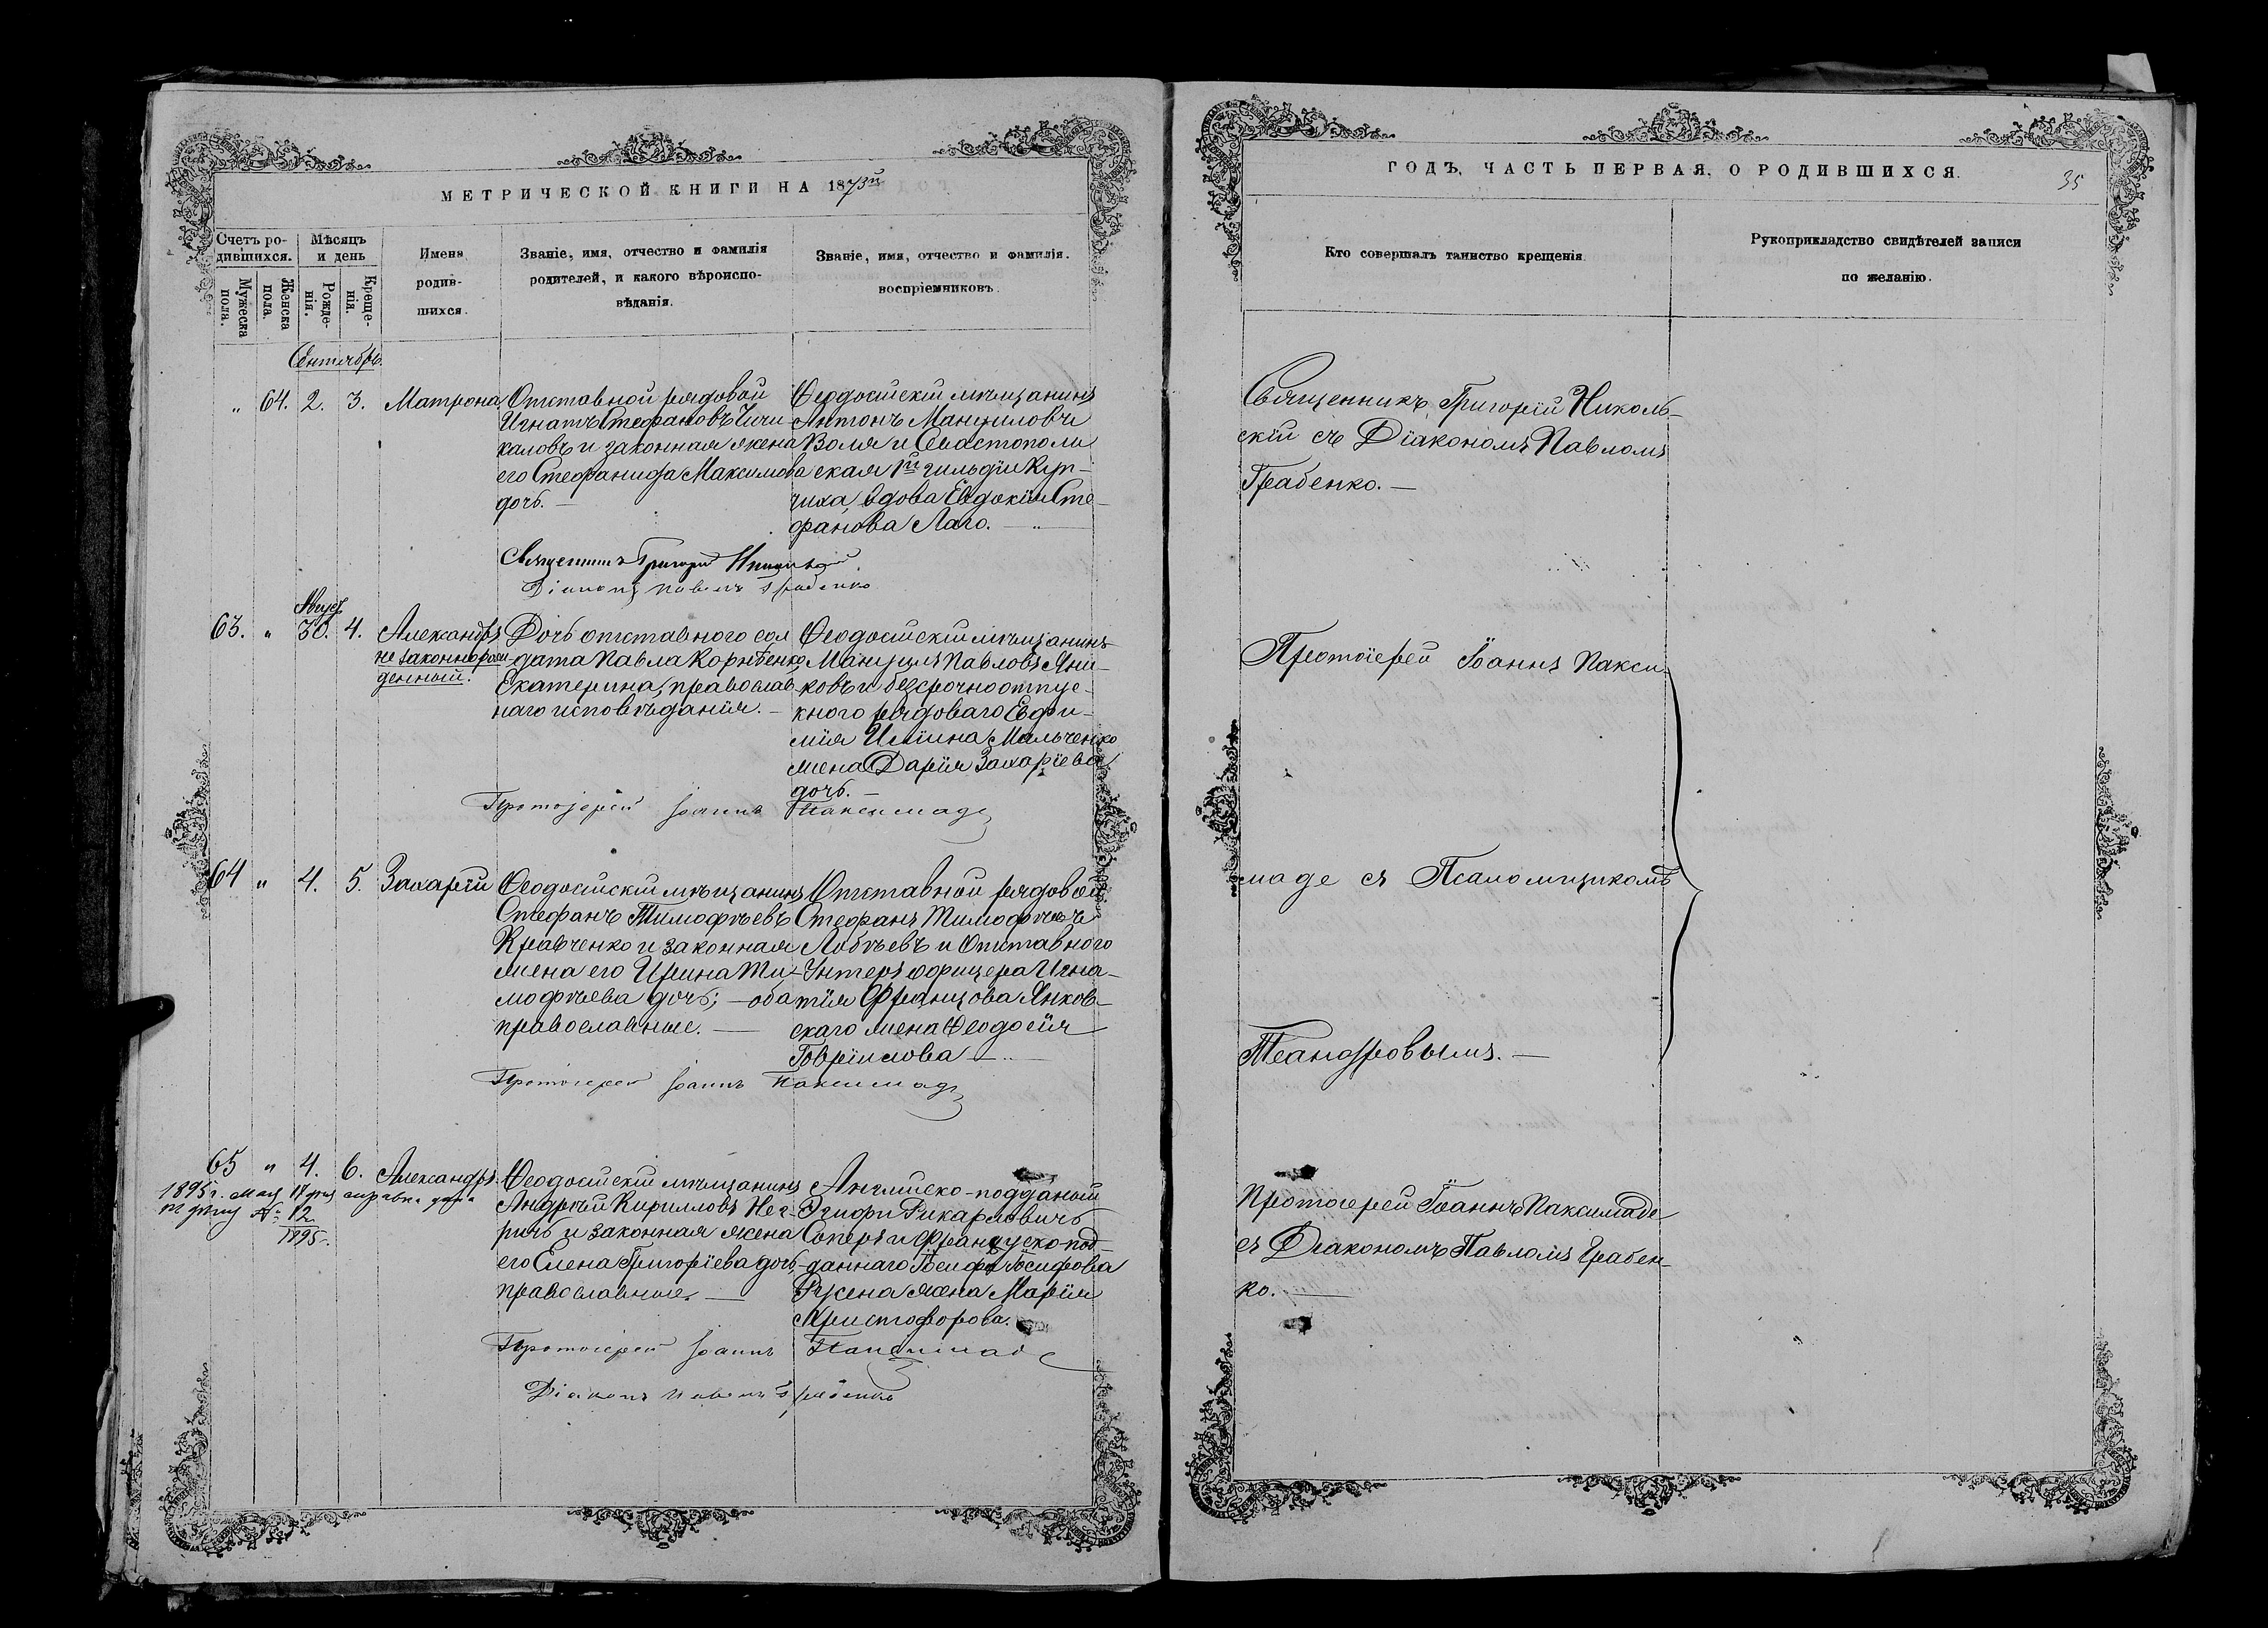 МЕТРИЧЕСКОЙ КНИГИ НА 1873й
Счетъ ро-
дившихся.
Мужеска
пола.
Женска
пола.
Мѣсяцъ
и день
Рожде-
нія.
Креще-
нія.
Имена
родив-
шихся.
Званіе, имя, отчество и фамилія
родителей, и какого вѣроиспо-
вѣданія.
Званіе, имя, отчество и фамилія.
воспріемниковъ.
Сентябрь.
„ 64. 2. 3. Матрона.
Отставной рядовой
Игнатъ Стефановъ Чичи-
каловъ и законная жена
его Стефанида Максимова
дочь. —
Ѳеодосійскій мѣщанинъ
Антонъ Мануиловъ
Воля и Севастополь
ская 1й гильдіи Куп-
чиха, вдова Евдокія Сте-
фанова Лаго. —
Священникъ Григорій Никольскій
Діаконъ Павелъ Грабенко
Август
63. „ 30. 4. Александръ
незаконнорож-
денный.
Дочь отставного сол
дата Павла Корнѣенко
Екатерина, православ
наго исповѣданія. —
Ѳеодосійскій мѣщанинъ
Мануилъ Павловъ Яни-
ковъ и безсрочноотпус-
кного рядоваго Евфи-
мія Ильина Мальченко
жена Дарія Захаріева
дочь. —
Протоіерей Іоаннъ Паксимаде
64 „ 4. 5. Захарій
Ѳеодосійскій мѣщанинъ
Стефанъ Тимофѣевъ
Кравченко и законная
жена его Ирина Ти-
мофѣева дочь; — оба
православные. —
Отставной рядовой
Стефанъ Тимофѣевъ
Лобѣевъ и Отставного
Унтеръ офицера Игна-
тія Францова Янков-
скаго жена Ѳеодосія
Говріилова —
Протоіерей Іоаннъ Паксимаде
65 „ 4. 6. Александръ.
1895г. Мая 17 дня справка дана
№ 12
1895.
Ѳеодосійскій мѣщанинъ
Андрей Кирилловъ Нег-
ричъ и законная жена
его Елена Григоріева дочь,
православные. —
Англійско-подданый
Рикардовичъ
Соперъ и Французско-под-
даннаго Іосифа Іосифова
жена Марія
Христофорова.
Протоіерей Іоаннъ Паксимаде
Діаконъ Павелъ Грабенко
ГОДЪ, ЧАСТЬ ПЕРВАЯ, О РОДИВШИХСЯ.
35
Кто совершалъ таинство крещенія.
Рукоприкладство свидѣтелей записи
по желанію.
Священникъ Григорій Николь-
скій съ Діакономъ Павломъ
Грабенко. —
Протоіерей Іоаннъ Пакси-
маде съ Псаломщикомъ
Теандровымъ. —
Протоіерей Іоаннъ Паксимаде
съ Діакономъ Павломъ Грабен-
ко. —